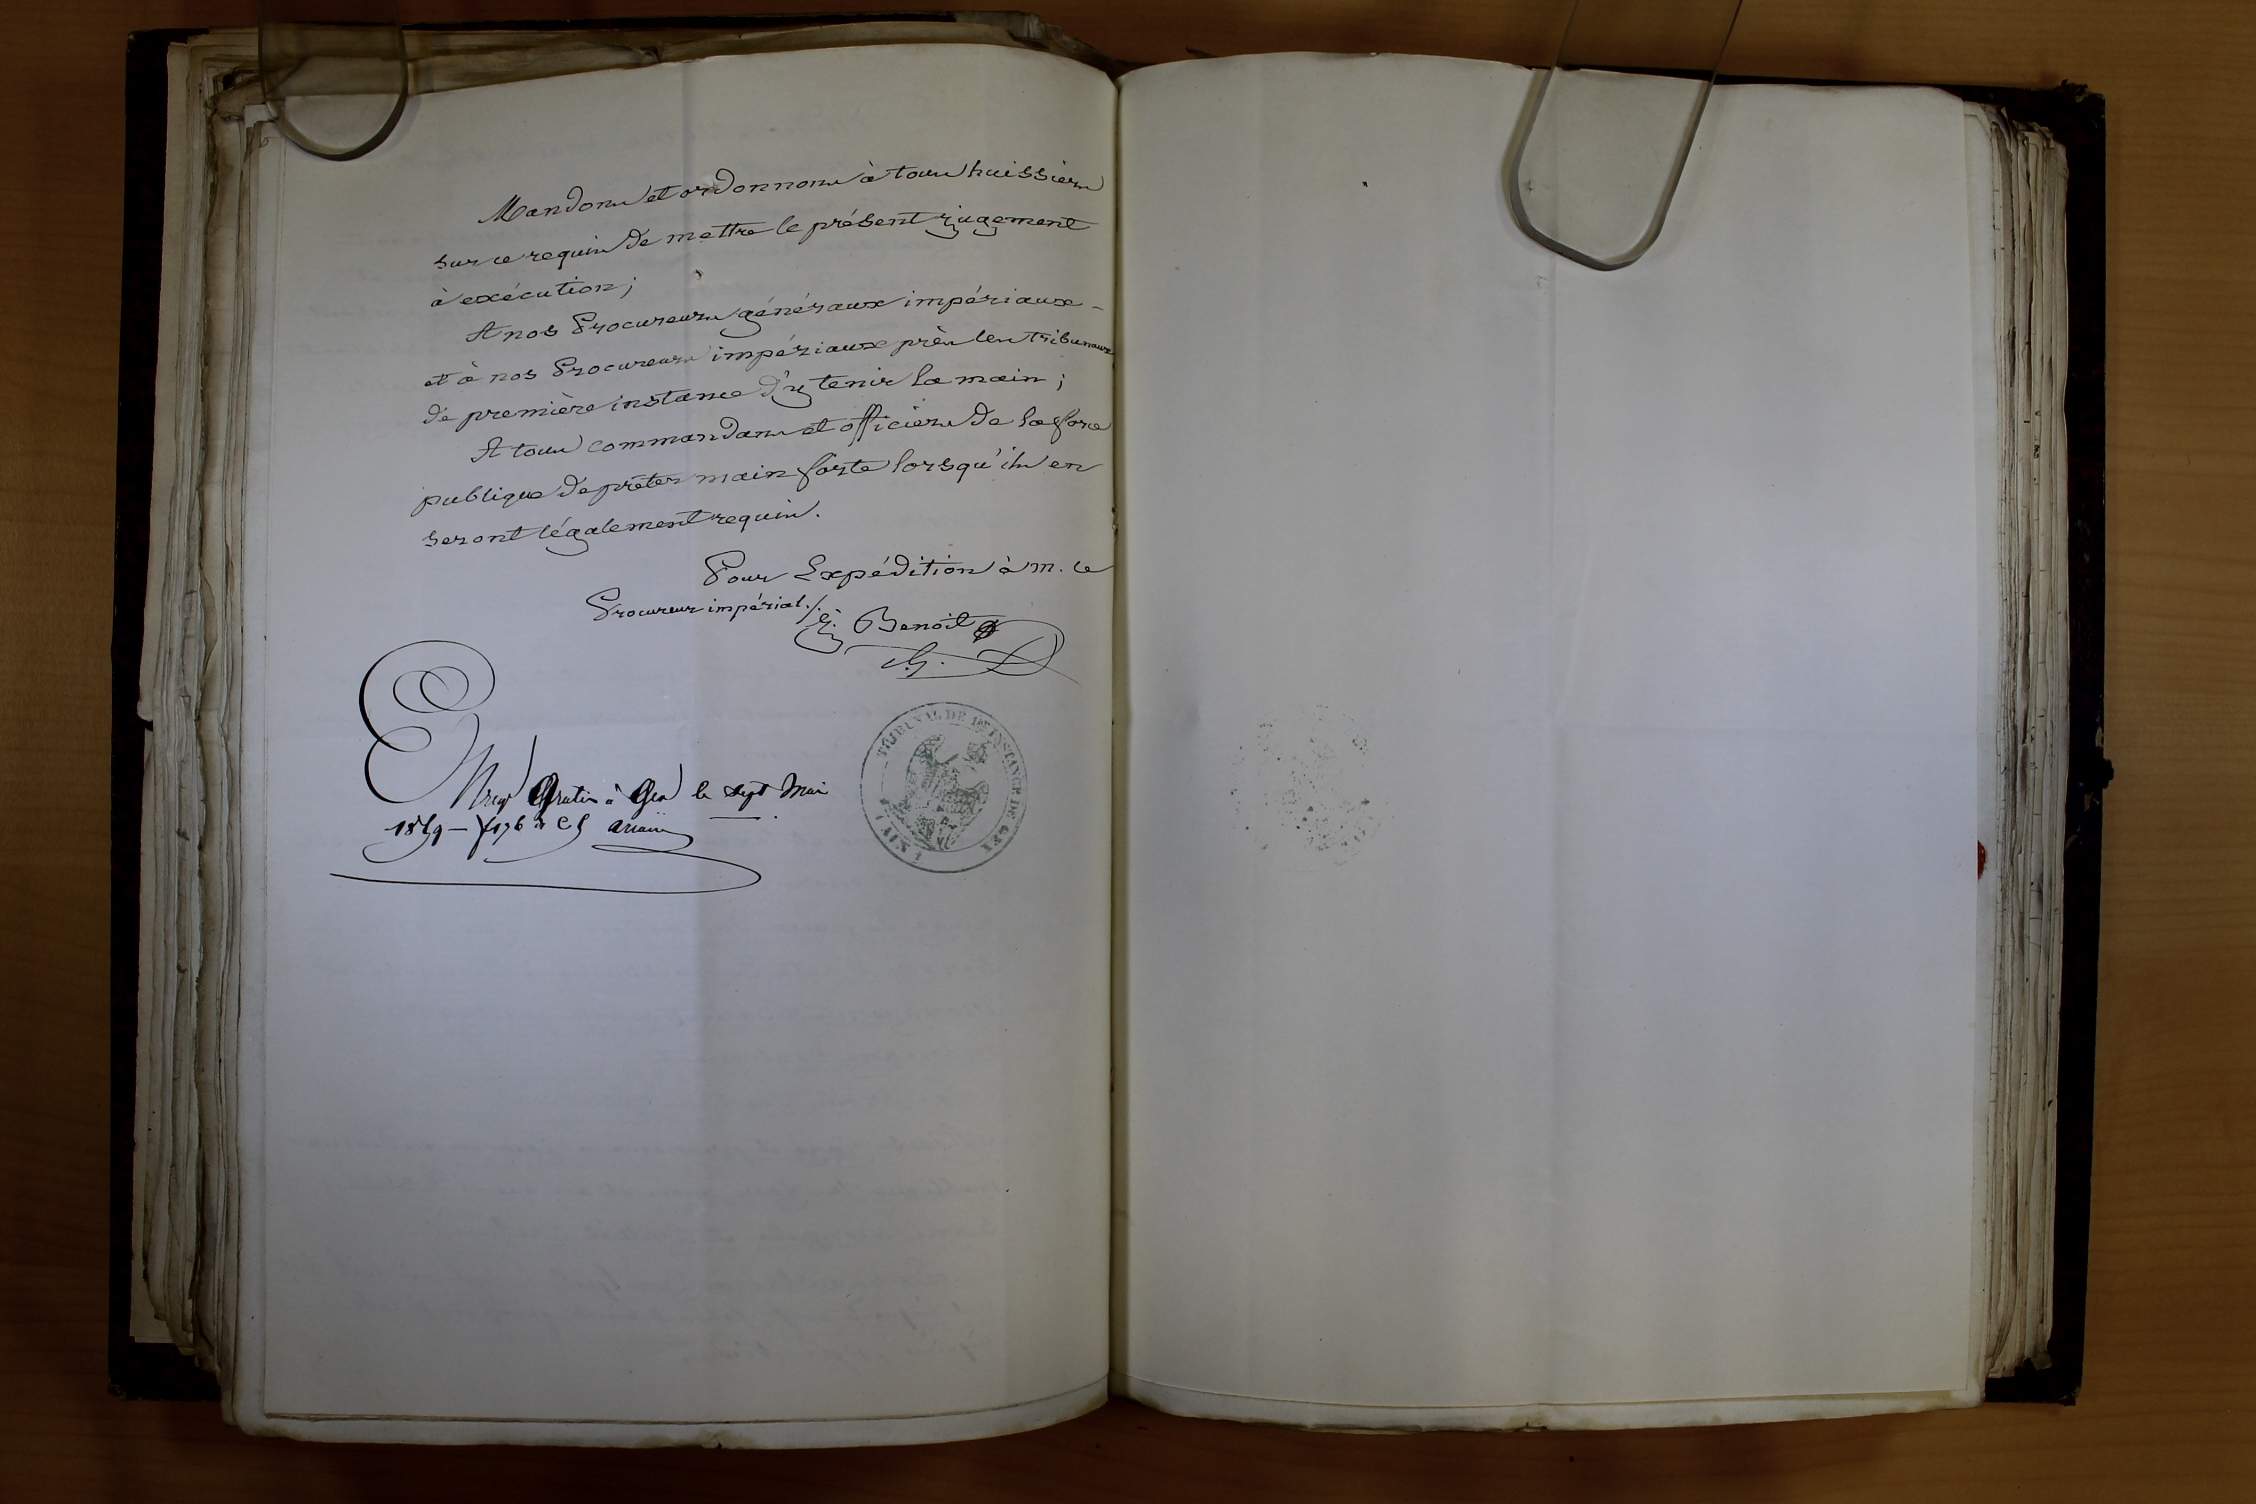 Mandons et ordonnons à tous huissiers
sur ce requis de mettre le présent jugement
à exécution;
A nos Procureurs généraux impériaux
et à nos Procureurs impériaux près les tribunaux
de première instance d'y tenir la main;
A tous commandans et officiers de la force
publique de prêter main forte lorsqu'ils en
seront légalement requis.
Pour Expédition à M. le
Procureur impérial./.
Benoit
G.
Enreg Gratis à Gex le sept Mai
1859 – f° 176
TRIBUNAL DE 1ERE INSTANCE DE GEX
( AIN )